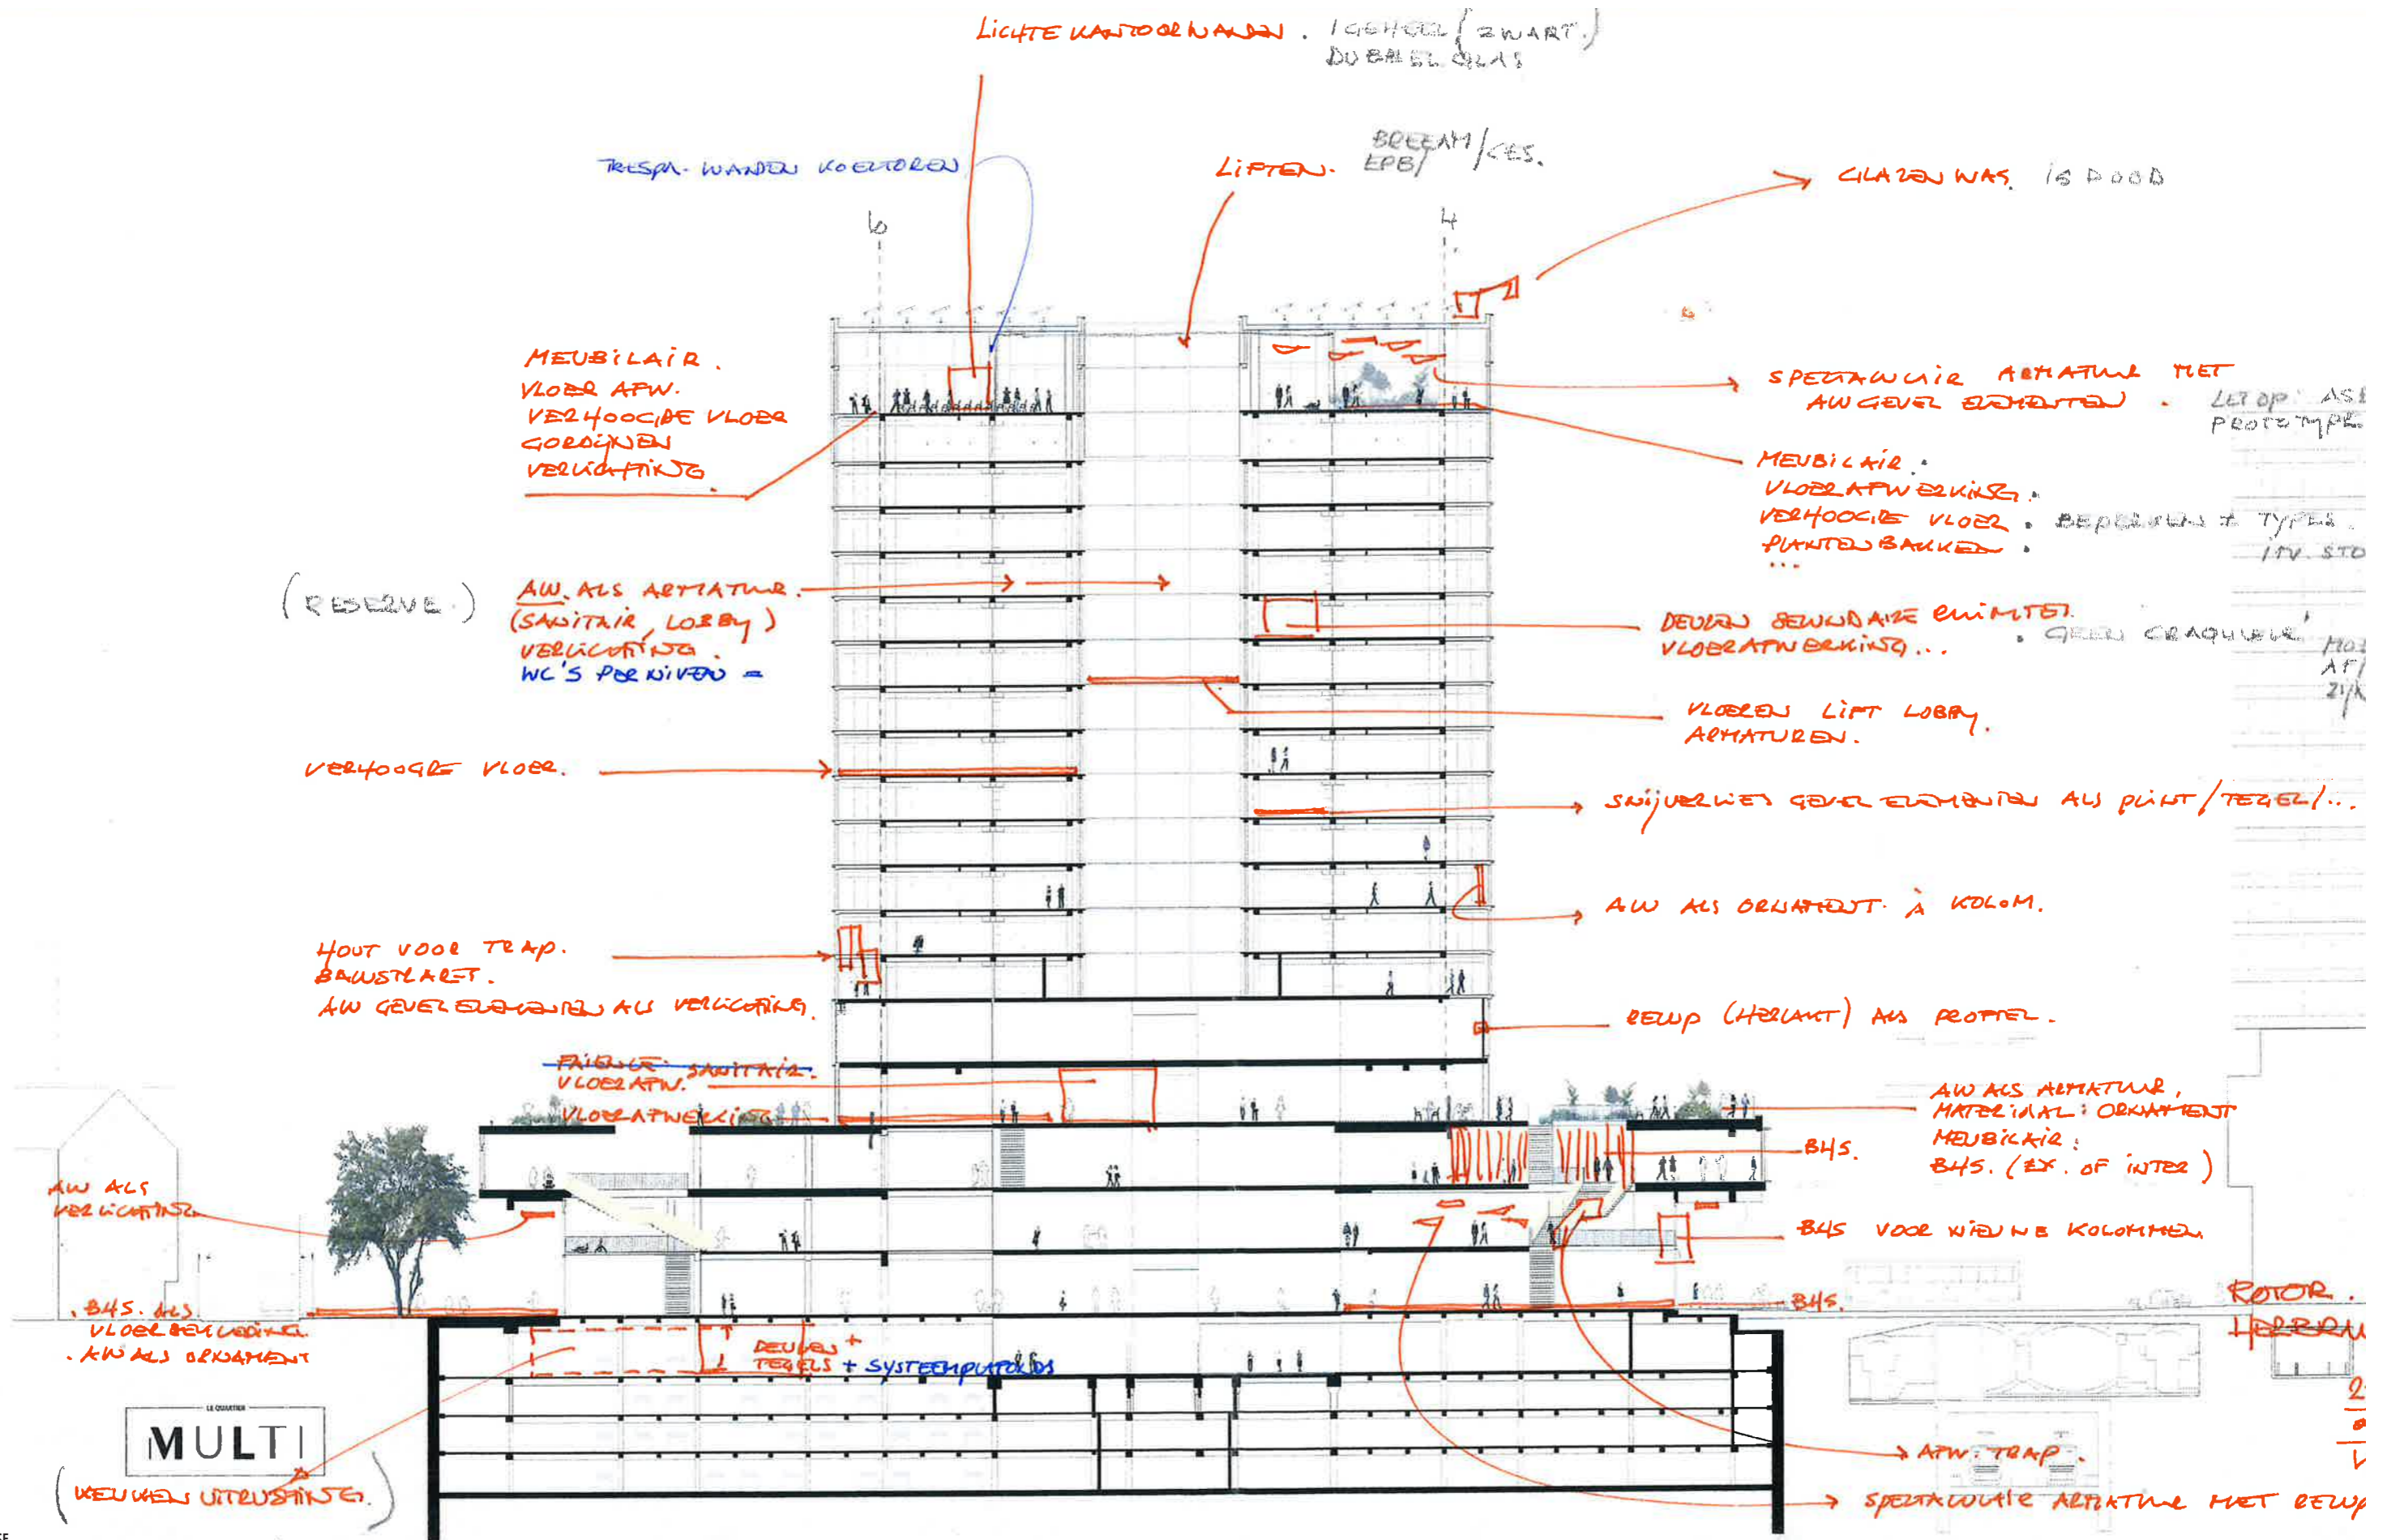 LICHTE KANTOORWANDEN. 1 GEHEEL (ZWART.)
DUBBEL GLAS
TRESPA-WANDEN KOELTOREN
LIFTEN.
BREEAM/CES.
EPB/
GLAZENWAS. IS DOOD
6
4
MEUBILAIR.
VLOER AFW.
VERHOOGDE VLOER
GORDIJNEN
VERLICHTING.
SPECTACULAIR ARMATUUR MET
AW GEVEL ELEMENTEN.
LET OP:
PROTOTYPE
MEUBILAIR.
VLOERAFWERKING.
VERHOOGDE VLOER. BEPERKEN # TYPES.
PLANTENBAKKEN.
...
ITV. STO
(RESERVE.)
AW. ALS ARMATUUR.
(SANITAIR, LOBBY)
VERLICHTING.
WC'S PER NIVEAU =
DEUREN SECUNDAIRE RUIMTES.
VLOERAFWERKING...
. GEEN CRAQUELE'
VLOEREN LIFT LOBBY.
ARMATUREN.
VERHOOGDE VLOER.
SNIJVERLIES GEVEL ELEMENTEN ALS PLINT/TEGEL/...
AW ALS ORNAMENT. À KOLOM.
HOUT VOOR TRAP.
BALUSTRADE
AW GEVEL ELEMENTEN ALS VERLICHTING.
RECUP (HERLAKT) ALS PROFIEL.
FAIENCE SANITAIR.
VLOER AFW.
VLOERAFWERKING
AW ALS ARMATUUR,
MATERIAAL: ORNAMENT
MEUBILAIR:
BHS. (EX. OF INTER)
BHS.
AW ALS
VERLICHTING
BHS VOOR NIEUWE KOLOMMEN
BHS.
. BHS. ALS
VLOERBEKLEDING
. AW ALS ORNAMENT
DEUREN +
TEGELS + SYSTEEMPLAFONDS
ROTOR.
LE QUARTIER
MULTI
(KEUKEN UITRUSTING.)
AFW. TRAP.
SPECTACULAIR ARMATUUR MET RECUP